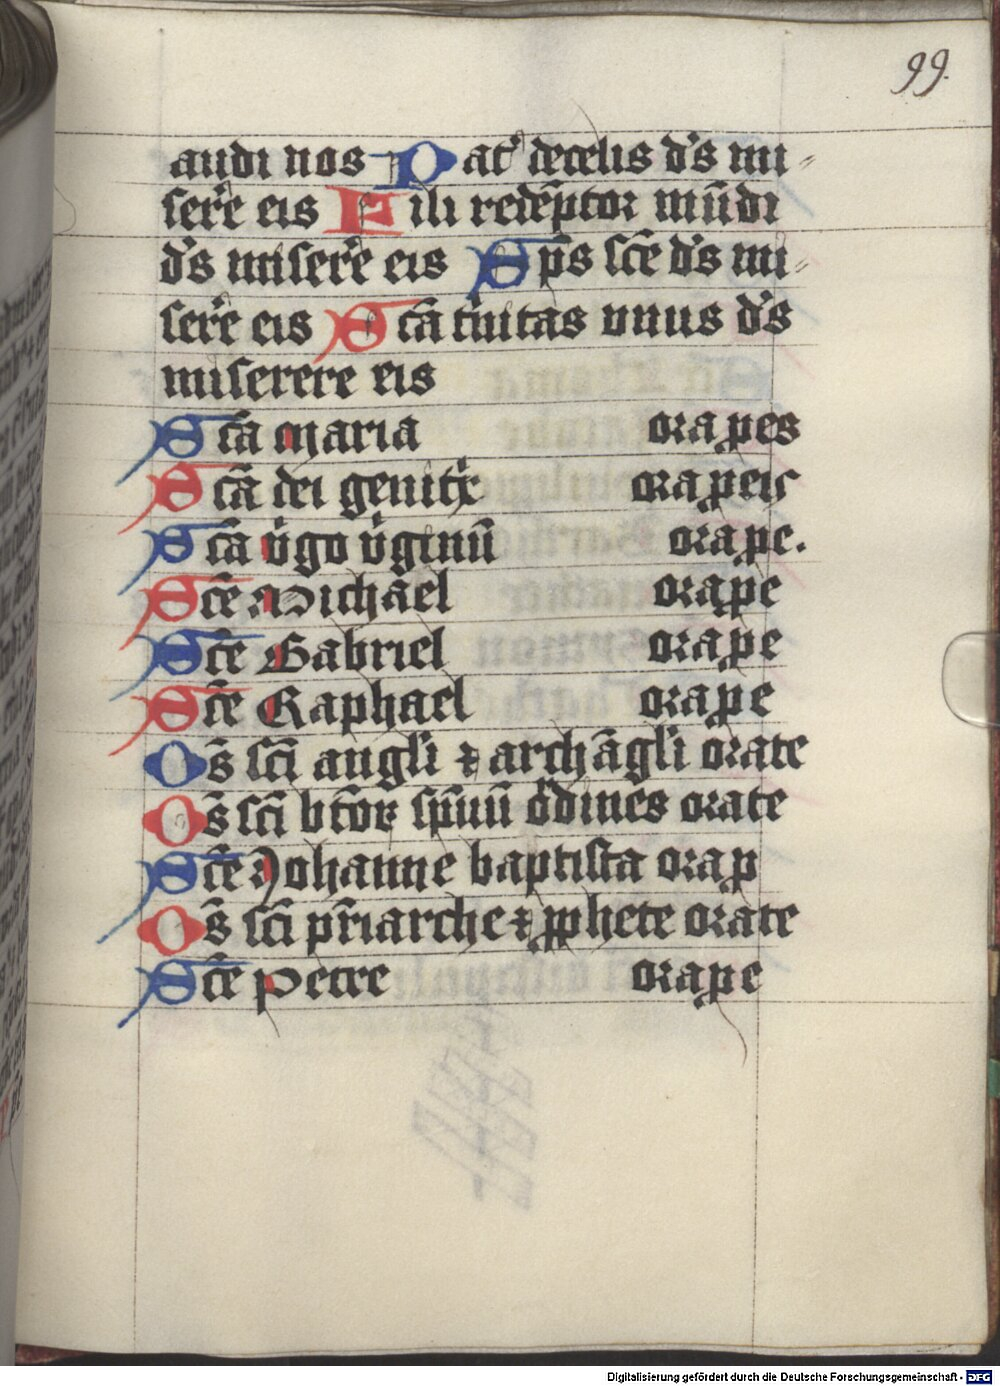 99.
audi nos Pat̉ decelis d̄s mi-
ser̄e eis Fili redēptor mūdi
d̄s miser̄e eis Sp̄s sc̄e d̄s mi-
ser̄e eis Sc̄a t̉nitas vnus d̄s
miserere eis
Sc̄a maria ora ꝑ es
Sc̄a dei genitͥx ora ꝑ eis
Sc̄a v̉go v̉ginū ora ꝑ e.
Sc̄e Michael ora ꝑ e
Sc̄e Gabriel ora ꝑ e
Sc̄e Raphael ora ꝑ e
Om̄s sc̄i angl̉i ⁊ archāgl̉i orate
Om̄s sc̄i bt̄oꝝ sp̄uū ordines orate
Sc̄e Johanne baptista ora ꝑ
Om̄s sc̄i pr̄iarche ⁊ ꝓphete orate
Sc̄e Petre ora ꝑ e
Digitalisierung gefördert durch die Deutsche Forschungsgemeinschaft - DFG